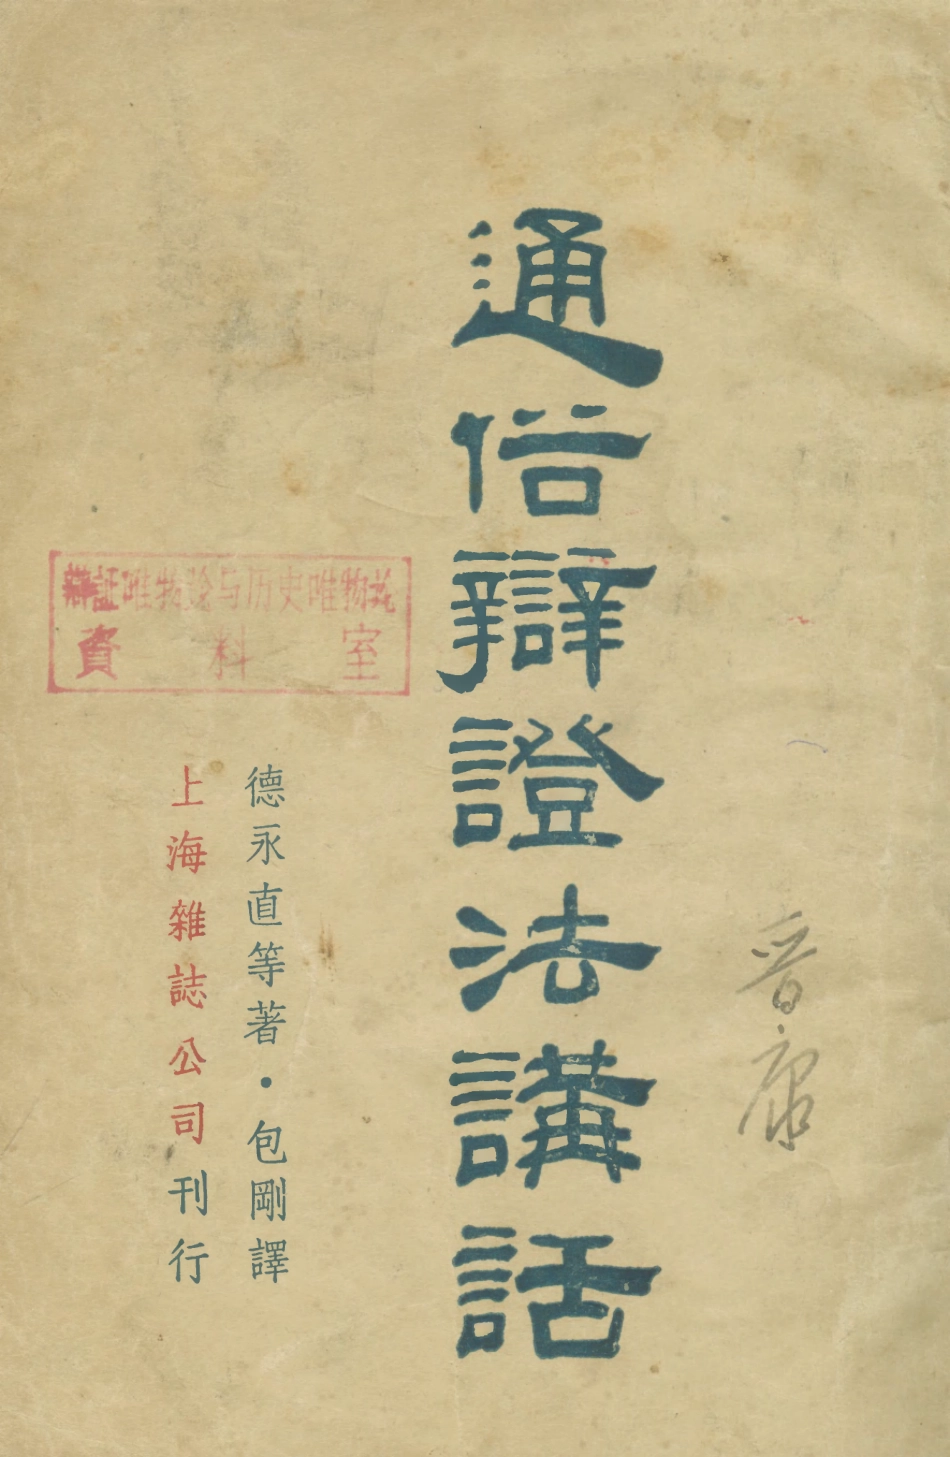 通俗辯證法講話
德永直等著・包剛譯
上海雜誌公司刊行
辯証唯物论与历史唯物羛
資料室
晋康